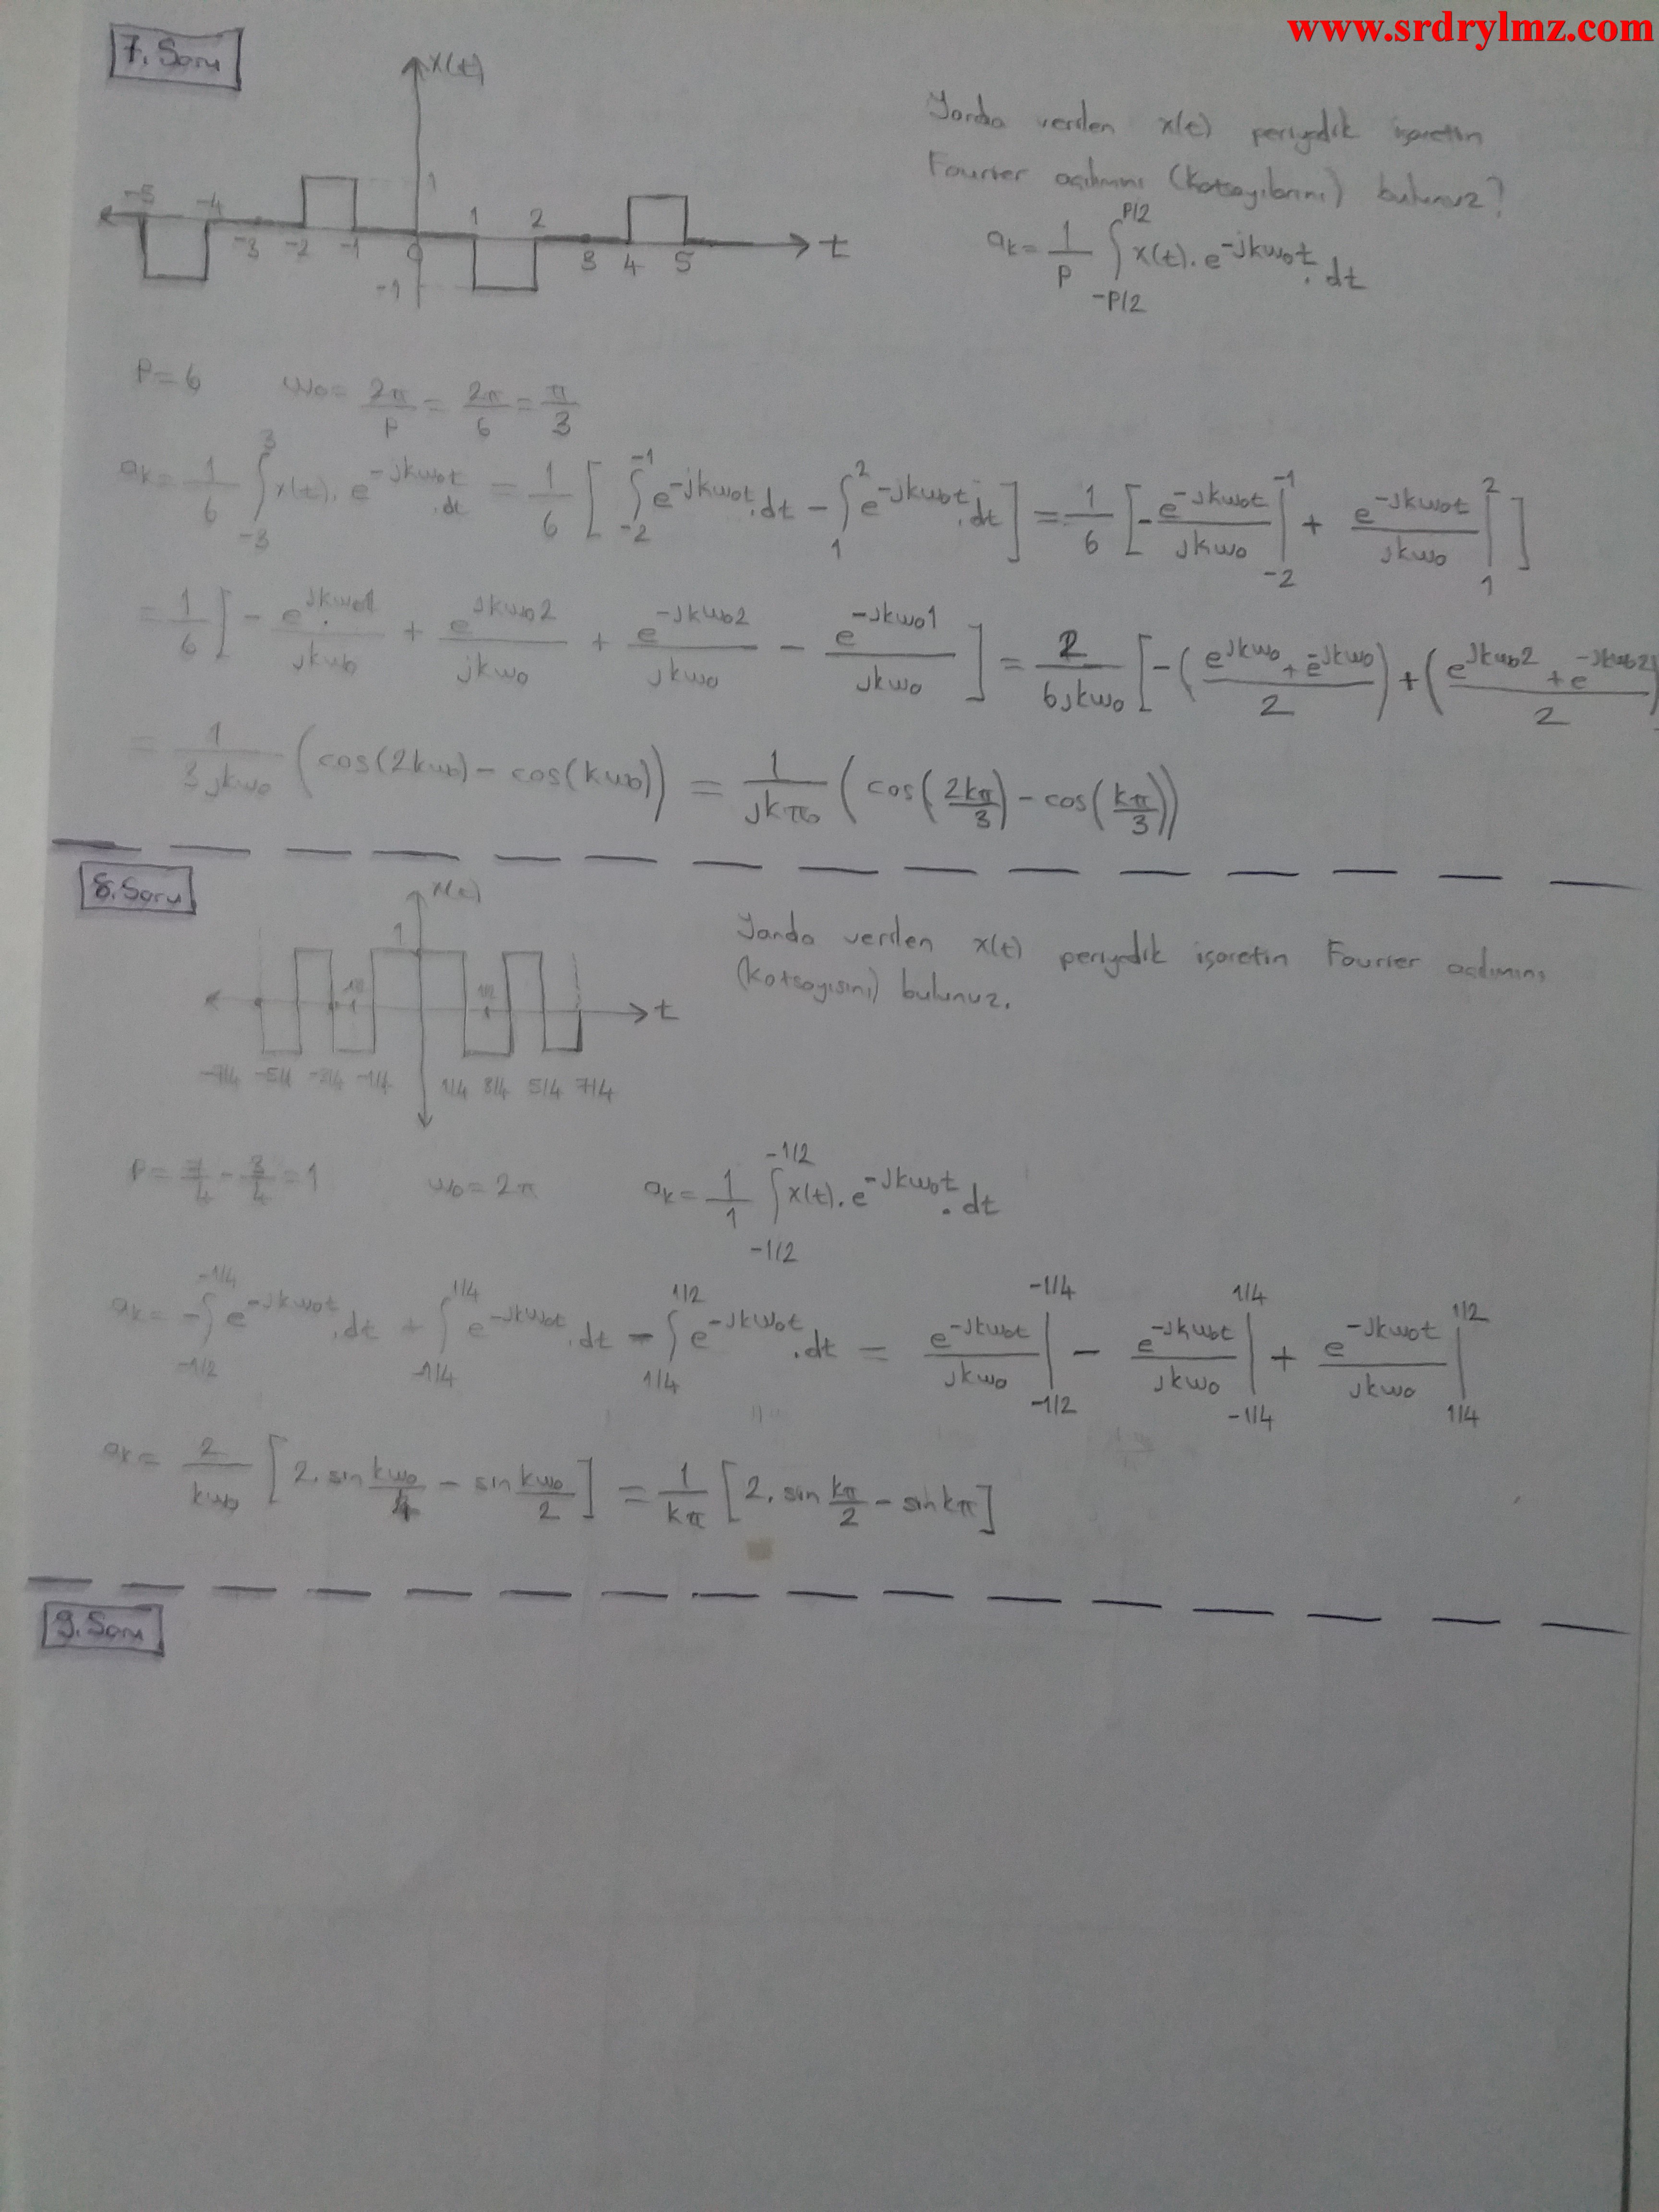 www.srdrylmz.com
7. Soru
x(t)
Yanda verilen x(t) periyodik işaretin
Fourier açılımını (katsayılarını) bulunuz?
-5 -4 -3 -2 -1 0 1 2 3 4 5 t
1
-1
ak = 1/P ∫_{-P/2}^{P/2} x(t). e^{-jkw0t}. dt
P=6 w0 = 2π/P = 2π/6 = π/3
ak = 1/6 ∫_{-3}^{3} x(t). e^{-jkw0t}. dt = 1/6 [ ∫_{-2}^{-1} e^{-jkw0t}. dt - ∫_{1}^{2} e^{-jkw0t}. dt ] = 1/6 [ - e^{-jkw0t}/jkw0 |_{-2}^{-1} + e^{-jkw0t}/jkw0 |_{1}^{2} ]
= 1/6 [ - e^{jkw01}/jkw0 + e^{jkw02}/jkw0 + e^{-jkw02}/jkw0 - e^{-jkw01}/jkw0 ] = 2/6jkw0 [ -( e^{jkw0} + e^{-jkw0} / 2 ) + ( e^{jkw02} + e^{-jkw02} / 2 )
= 1/3jkw0 (cos(2kw0) - cos(kw0)) = 1/jkπ0 ( cos(2kπ/3) - cos(kπ/3))
8. Soru
x(t)
Yanda verilen x(t) periyodik işaretin Fourier açılımını
(katsayısını) bulunuz.
1
t
-7/4 -5/4 -3/4 -1/4 1/4 3/4 5/4 7/4
P = 7/4 - 3/4 = 1 w0 = 2π ak = 1/1 ∫_{-1/2}^{-1/2} x(t). e^{-jkw0t}. dt
ak = - ∫_{-1/2}^{-1/4} e^{-jkw0t}. dt + ∫_{-1/4}^{1/4} e^{-jkw0t}. dt - ∫_{1/4}^{1/2} e^{-jkw0t}. dt = e^{-jkw0t}/jkw0 |_{-1/2}^{-1/4} - e^{-jkw0t}/jkw0 |_{-1/4}^{1/4} + e^{-jkw0t}/jkw0 |_{1/4}^{1/2}
ak = 2/kw0 [ 2. sin kw0/4 - sin kw0/2 ] = 1/kπ [ 2. sin kπ/2 - sin kπ ]
9. Soru